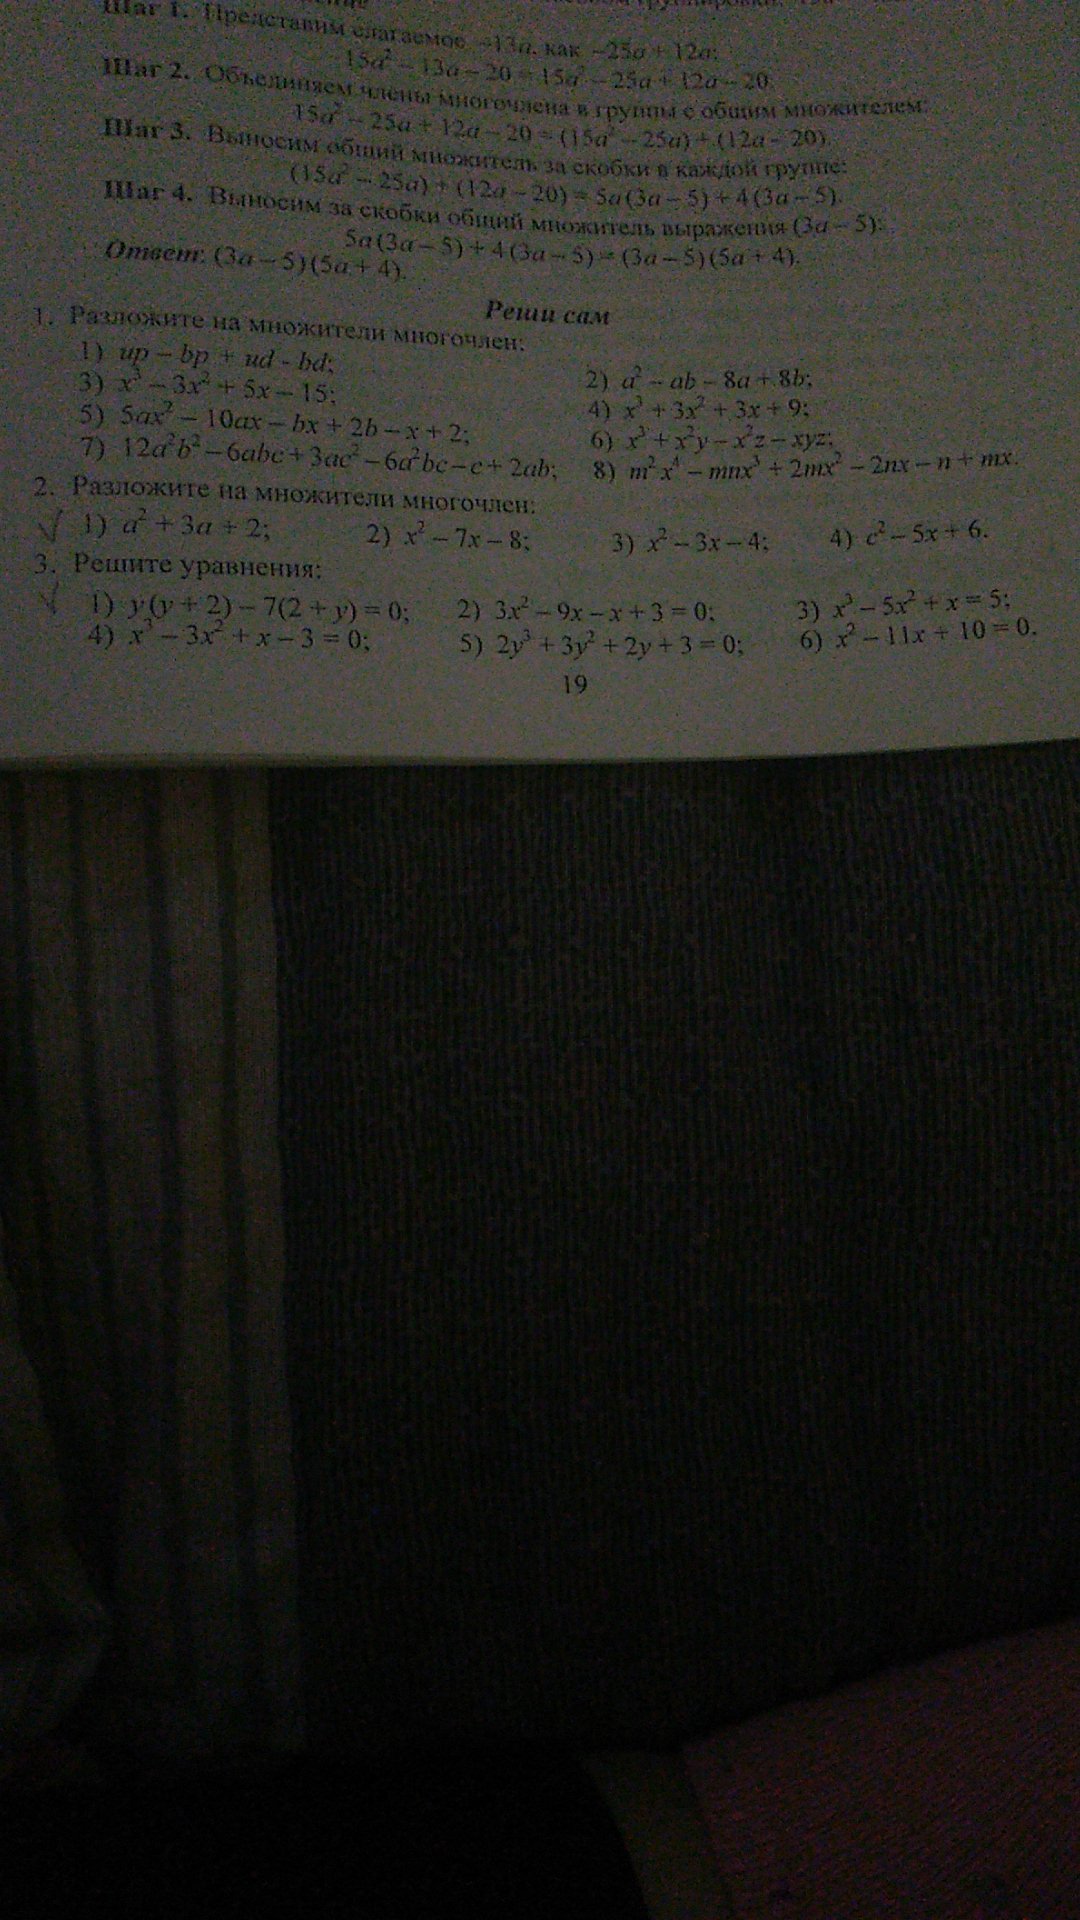 Шаг 1. Представим слагаемое −13a, как −25a + 12a:
15a² − 13a − 20 = 15a² − 25a + 12a − 20.
Шаг 2. Объединяем члены многочлена в группы с общим множителем:
15a² − 25a + 12a − 20 = (15a² − 25a) + (12a − 20).
Шаг 3. Выносим общий множитель за скобки в каждой группе:
(15a² − 25a) + (12a − 20) = 5a(3a − 5) + 4(3a − 5).
Шаг 4. Выносим за скобки общий множитель выражения (3a − 5):
5a(3a − 5) + 4(3a − 5) = (3a − 5)(5a + 4).
Ответ: (3a − 5)(5a + 4).
Реши сам
1. Разложите на множители многочлен:
1) up − bp + ud - bd; 2) a² − ab − 8a + 8b;
3) x³ − 3x² + 5x − 15; 4) x³ + 3x² + 3x + 9;
5) 5ax² − 10ax − bx + 2b − x + 2; 6) x³ + x²y − x²z − xyz;
7) 12a²b² − 6abc + 3ac² − 6a²bc − c + 2ab; 8) m²x⁴ − mnx³ + 2mx² − 2nx − n + mx.
2. Разложите на множители многочлен:
1) a² + 3a + 2; 2) x² − 7x − 8; 3) x² − 3x − 4; 4) c² − 5x + 6.
3. Решите уравнения:
1) y(y + 2) − 7(2 + y) = 0; 2) 3x² − 9x − x + 3 = 0; 3) x³ − 5x² + x = 5;
4) x³ − 3x² + x − 3 = 0; 5) 2y³ + 3y² + 2y + 3 = 0; 6) x² − 11x + 10 = 0.
19